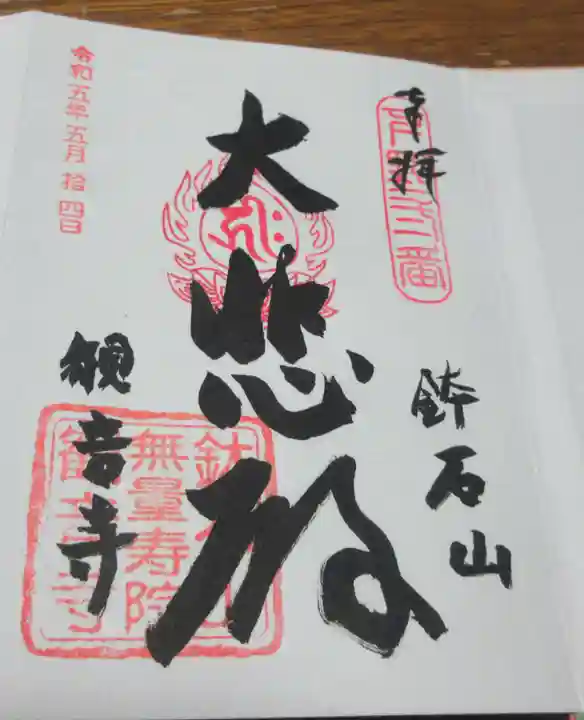 奉拝
下野三番
鉢石山
大悲殿
観音寺
鉢石山
無量寿院
観音寺
令和五年五月拾四日